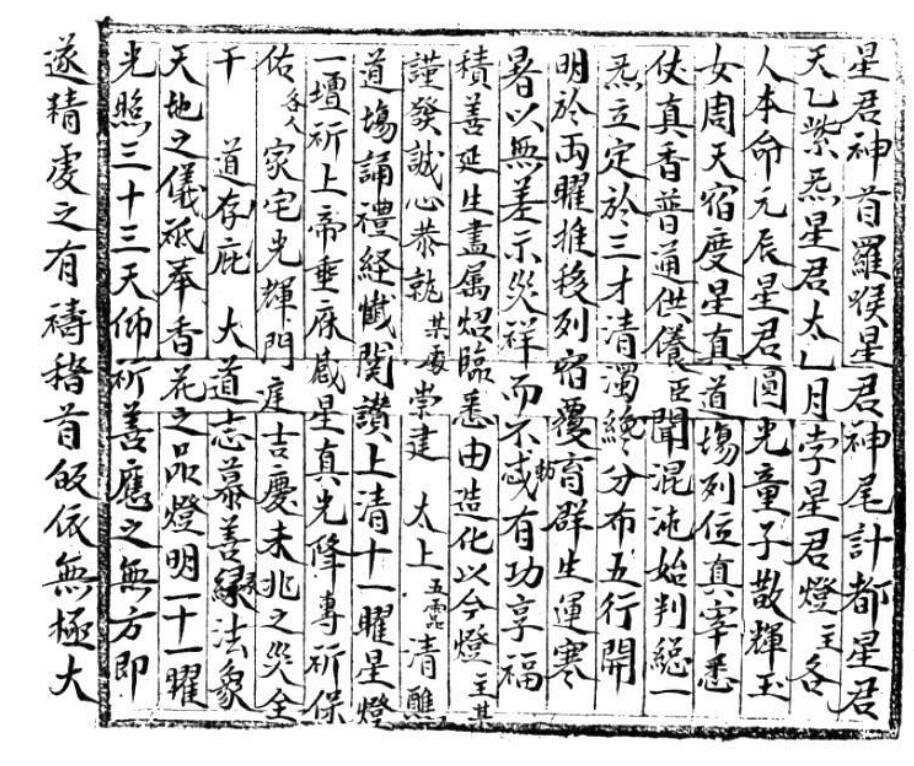 星君神首羅睺星君神尾計都星君
天乙紫炁星君太乙月孛星君燈主各
人本命元辰星君圓光童子散輝玉
女周天宿度星真道塲列位真宰悉
仗真香普通供養臣聞混沌始判縂一
炁立定於三才清濁纔分布五行開
明於兩曜推移列宿覆育群生運寒
暑以無差示災祥而不忒動有功享福
積善延生盡属炤臨悉由造化以今燈主某
謹發誠心恭就某處崇建太上五靈清醮
道塲誦禮経懺関讃上清十一曜星燈
一壇祈上帝垂庥感星真光降專祈保
佑各人家宅光輝門庭吉慶未兆之災全
干道存庇大道志慕善緣法象
天地之儀祗奉香花之品燈明一十一曜
光照三十三天仰祈善應之無方即
遂精虔之有禱稽首皈依無極大